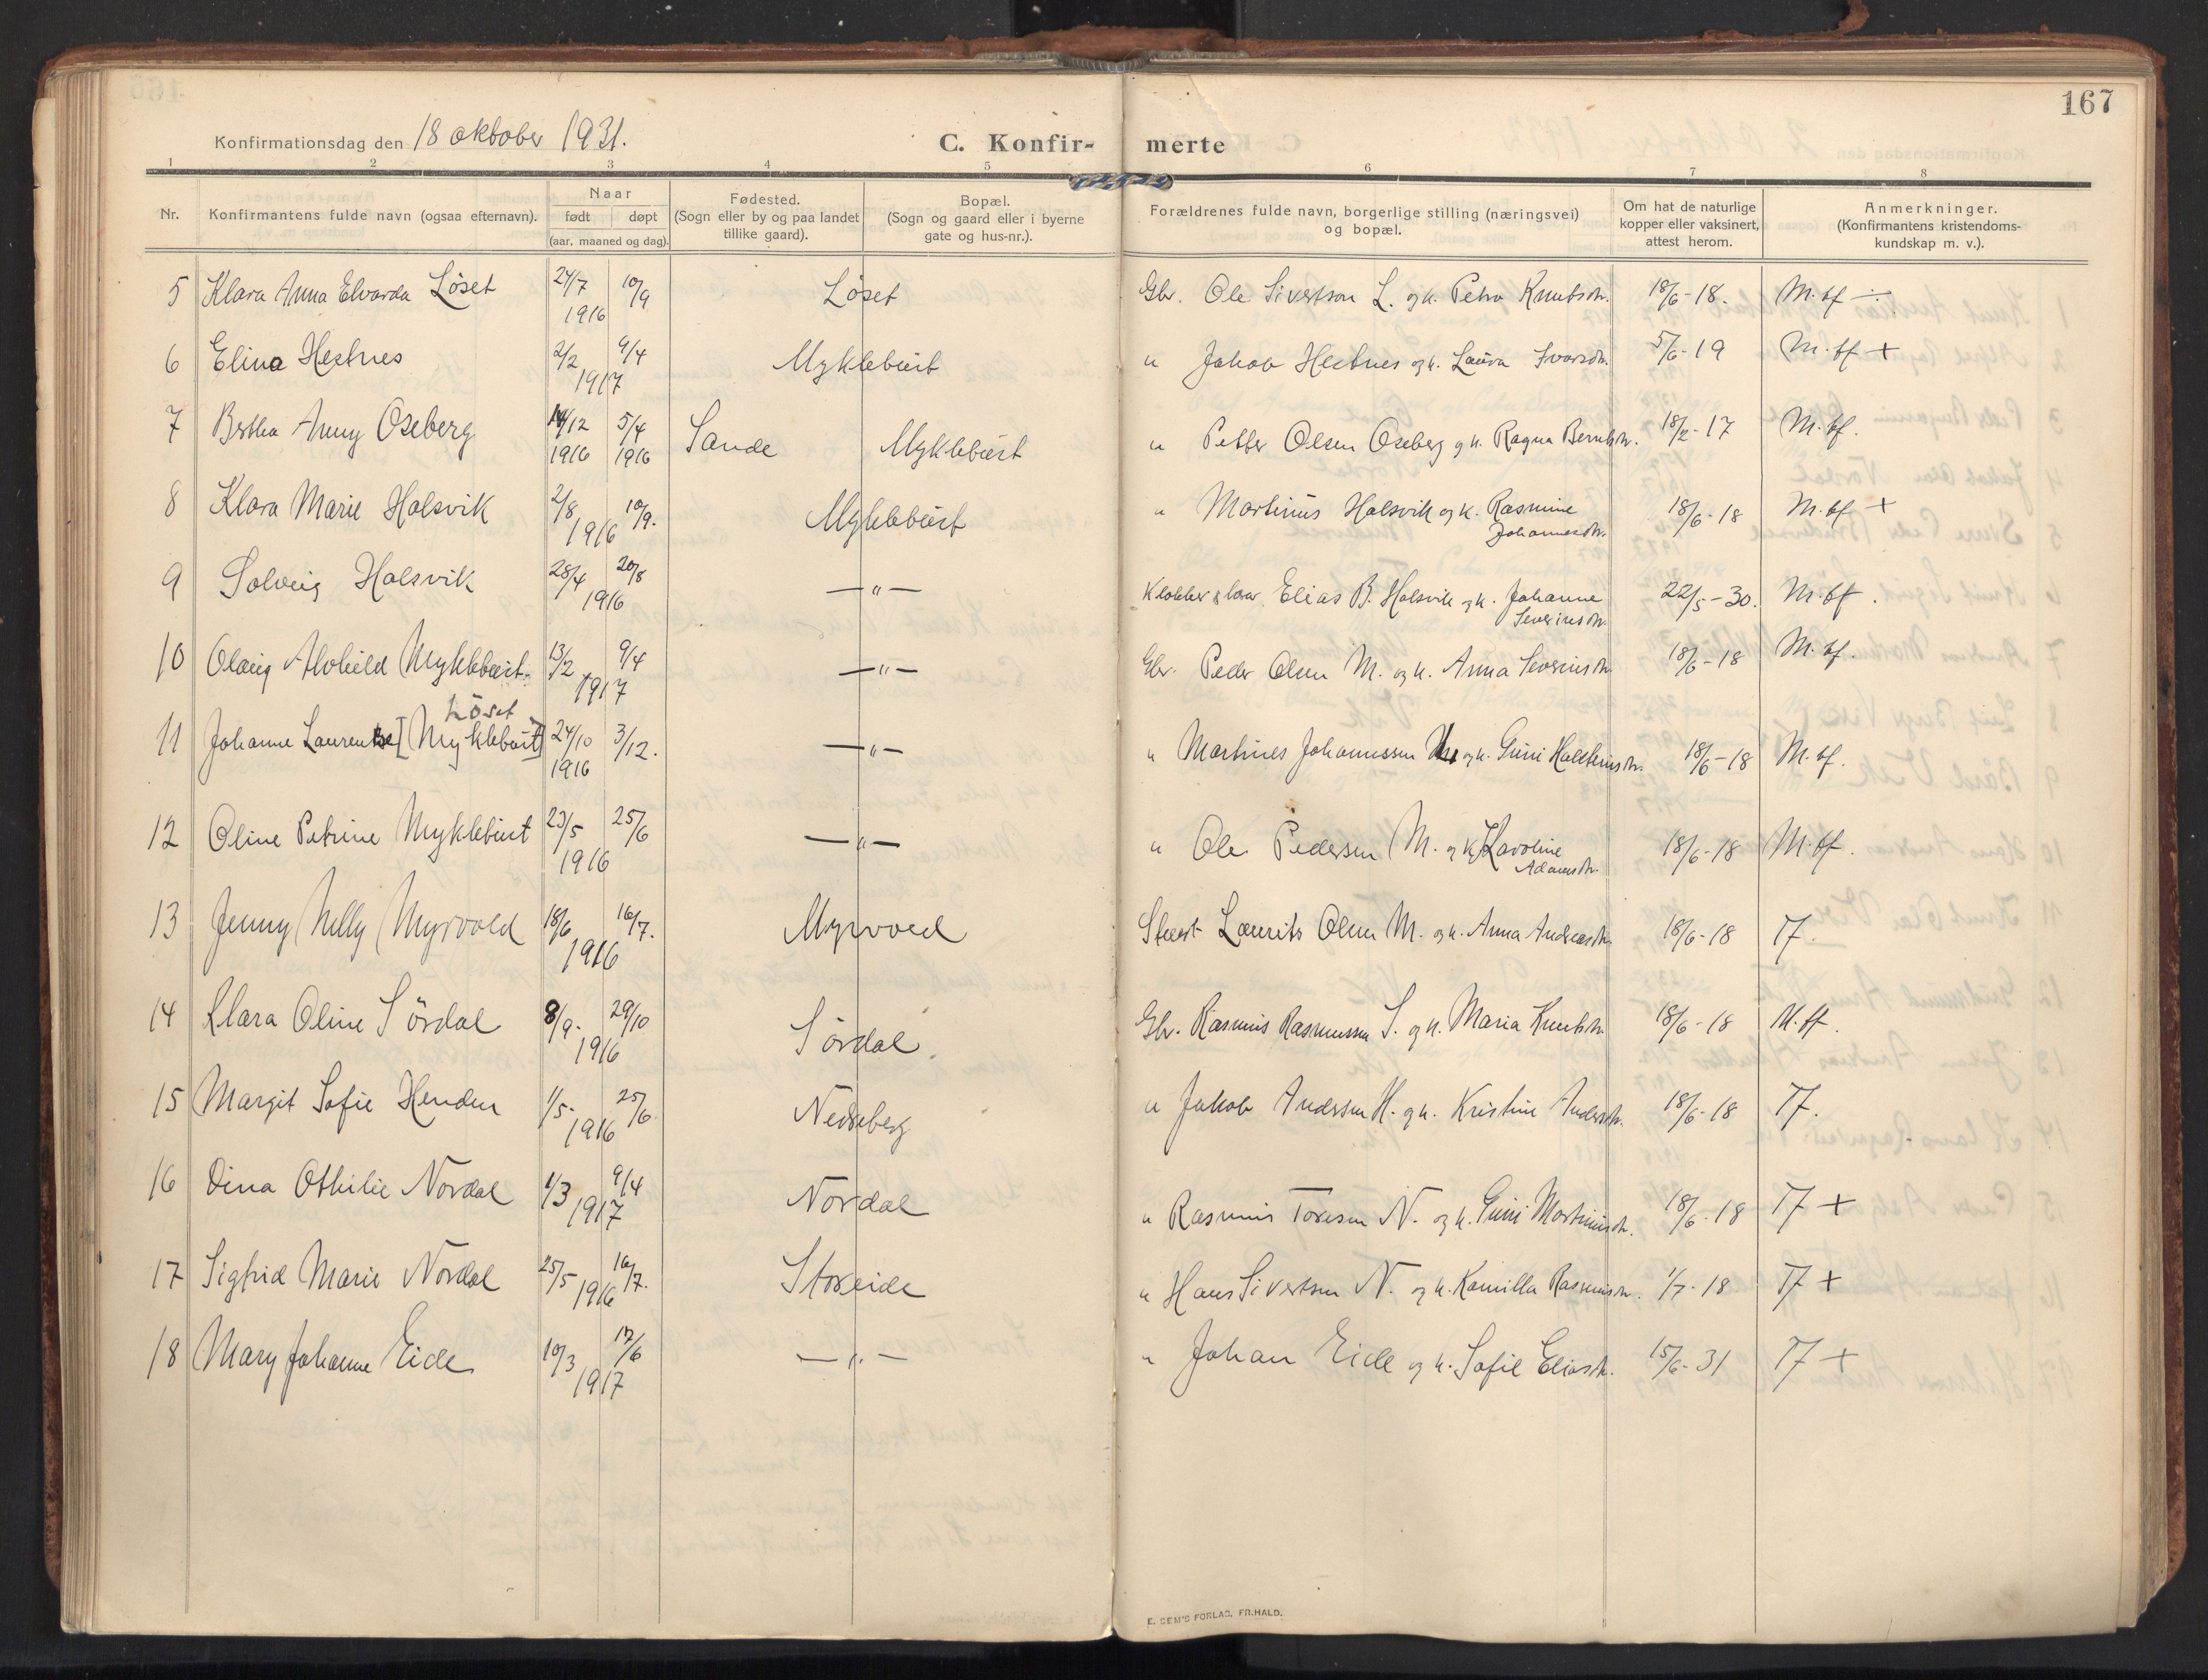 167
Konfirmationsdag den 18 oktober 1931.
C. Konfir- merte
1 2 3 4 5 6 7 8
Nr.
Konfirmantens fulde navn (ogsaa efternavn).
Naar
født døpt
(aar, maaned og dag).
Fødested.
(Sogn eller by og paa landet
tillike gaard).
Bopæl.
(Sogn og gaard eller i byerne
gate og hus-nr.).
Forældrenes fulde navn, borgerlige stilling (næringsvei)
og bopæl.
Om hat de naturlige
kopper eller vaksinert,
attest herom.
Anmerkninger.
(Konfirmantens kristendoms-
kundskap m. v.).
5 Klara Anna Elvarda Løset 24/7 10/9 Løset Gbr. Ole Sivertson L. og k. Petra Knutsdtr. 18/6-18. M.tf ÷
1916
6 Elina Hestnes 2/2 9/4 Myklebust " Jakob Hestnes og k. Laura Ivarsdtr. 5/6-19 M.tf +
1917
7 Bertha Anny Oseberg 14/12 5/4 Sande Myklebust " Petter Olsen Oseberg og k. Ragna Berntsdtr. 18/2-17 M.tf.
1916 1916
8 Klara Marie Halsvik 2/8 10/9. Myklebust " Martinus Halsvik og k. Rasmine 18/6-18 M.tf +
1916 Johannesdtr.
9 Solveig Halsvik 28/4 20/8 —"— Klokker & lærer Elias B. Halsvik og k. Johanne 22/5-30. M.tf.
1916 Severinsdtr.
10 Olaug Alvhild Myklebust. 13/2 9/4 —"— Gbr. Peder Olsen M. og k. Anna Severinsdtr. 18/6-18 M.tf.
1917
Löset
11 Johanne Laurentse [Myklebust] 24/10 3/12. —"— " Martines Johannessen M og k. Guri Halsteinsdtr. 18/6-18 M.tf.
1916
12 Oline Petrine Myklebust 23/5 25/6 —"— " Ole Pedersen M. og k. Karoline 18/6-18 M.tf.
1916 Adamsdtr.
13 Jenny Nelly Myrvold 18/6 16/7. Myrvold Laurits Olsen M. og k. Anna Andreasdtr. 18/6-18 Tf.
1916
14 Klara Oline Sördal 8/9. 29/10 Sördal. Gbr. Rasmus Rasmussen S. og k. Maria Knutsdtr. 18/6-18 M.tf.
1916
15 Margit Sofie Henden 1/5. 25/6 Nedreberg " Jakob Andersen H. og k. Kristine Andersdtr. 18/6-18 Tf.
1916
16 Dina Othilie Nordal 1/3 9/4 Nordal " Rasmus Toresen N. og k. Guri Martinusdtr. 18/6-18 Tf +
1917
17 Sigfrid Marie Nordal 25/5 16/7. Storeide " Hans Sivertsen N. og k. Kamilla Rasmusdtr. 1/7-18 Tf +
1916
18 Mary Johanne Eide 10/3 17/6 —"— " Johan Eide og k. Sofie Eliasdtr. 15/6-31 Tf +
1917
E. SEM'S FORLAG, FR.HALD.